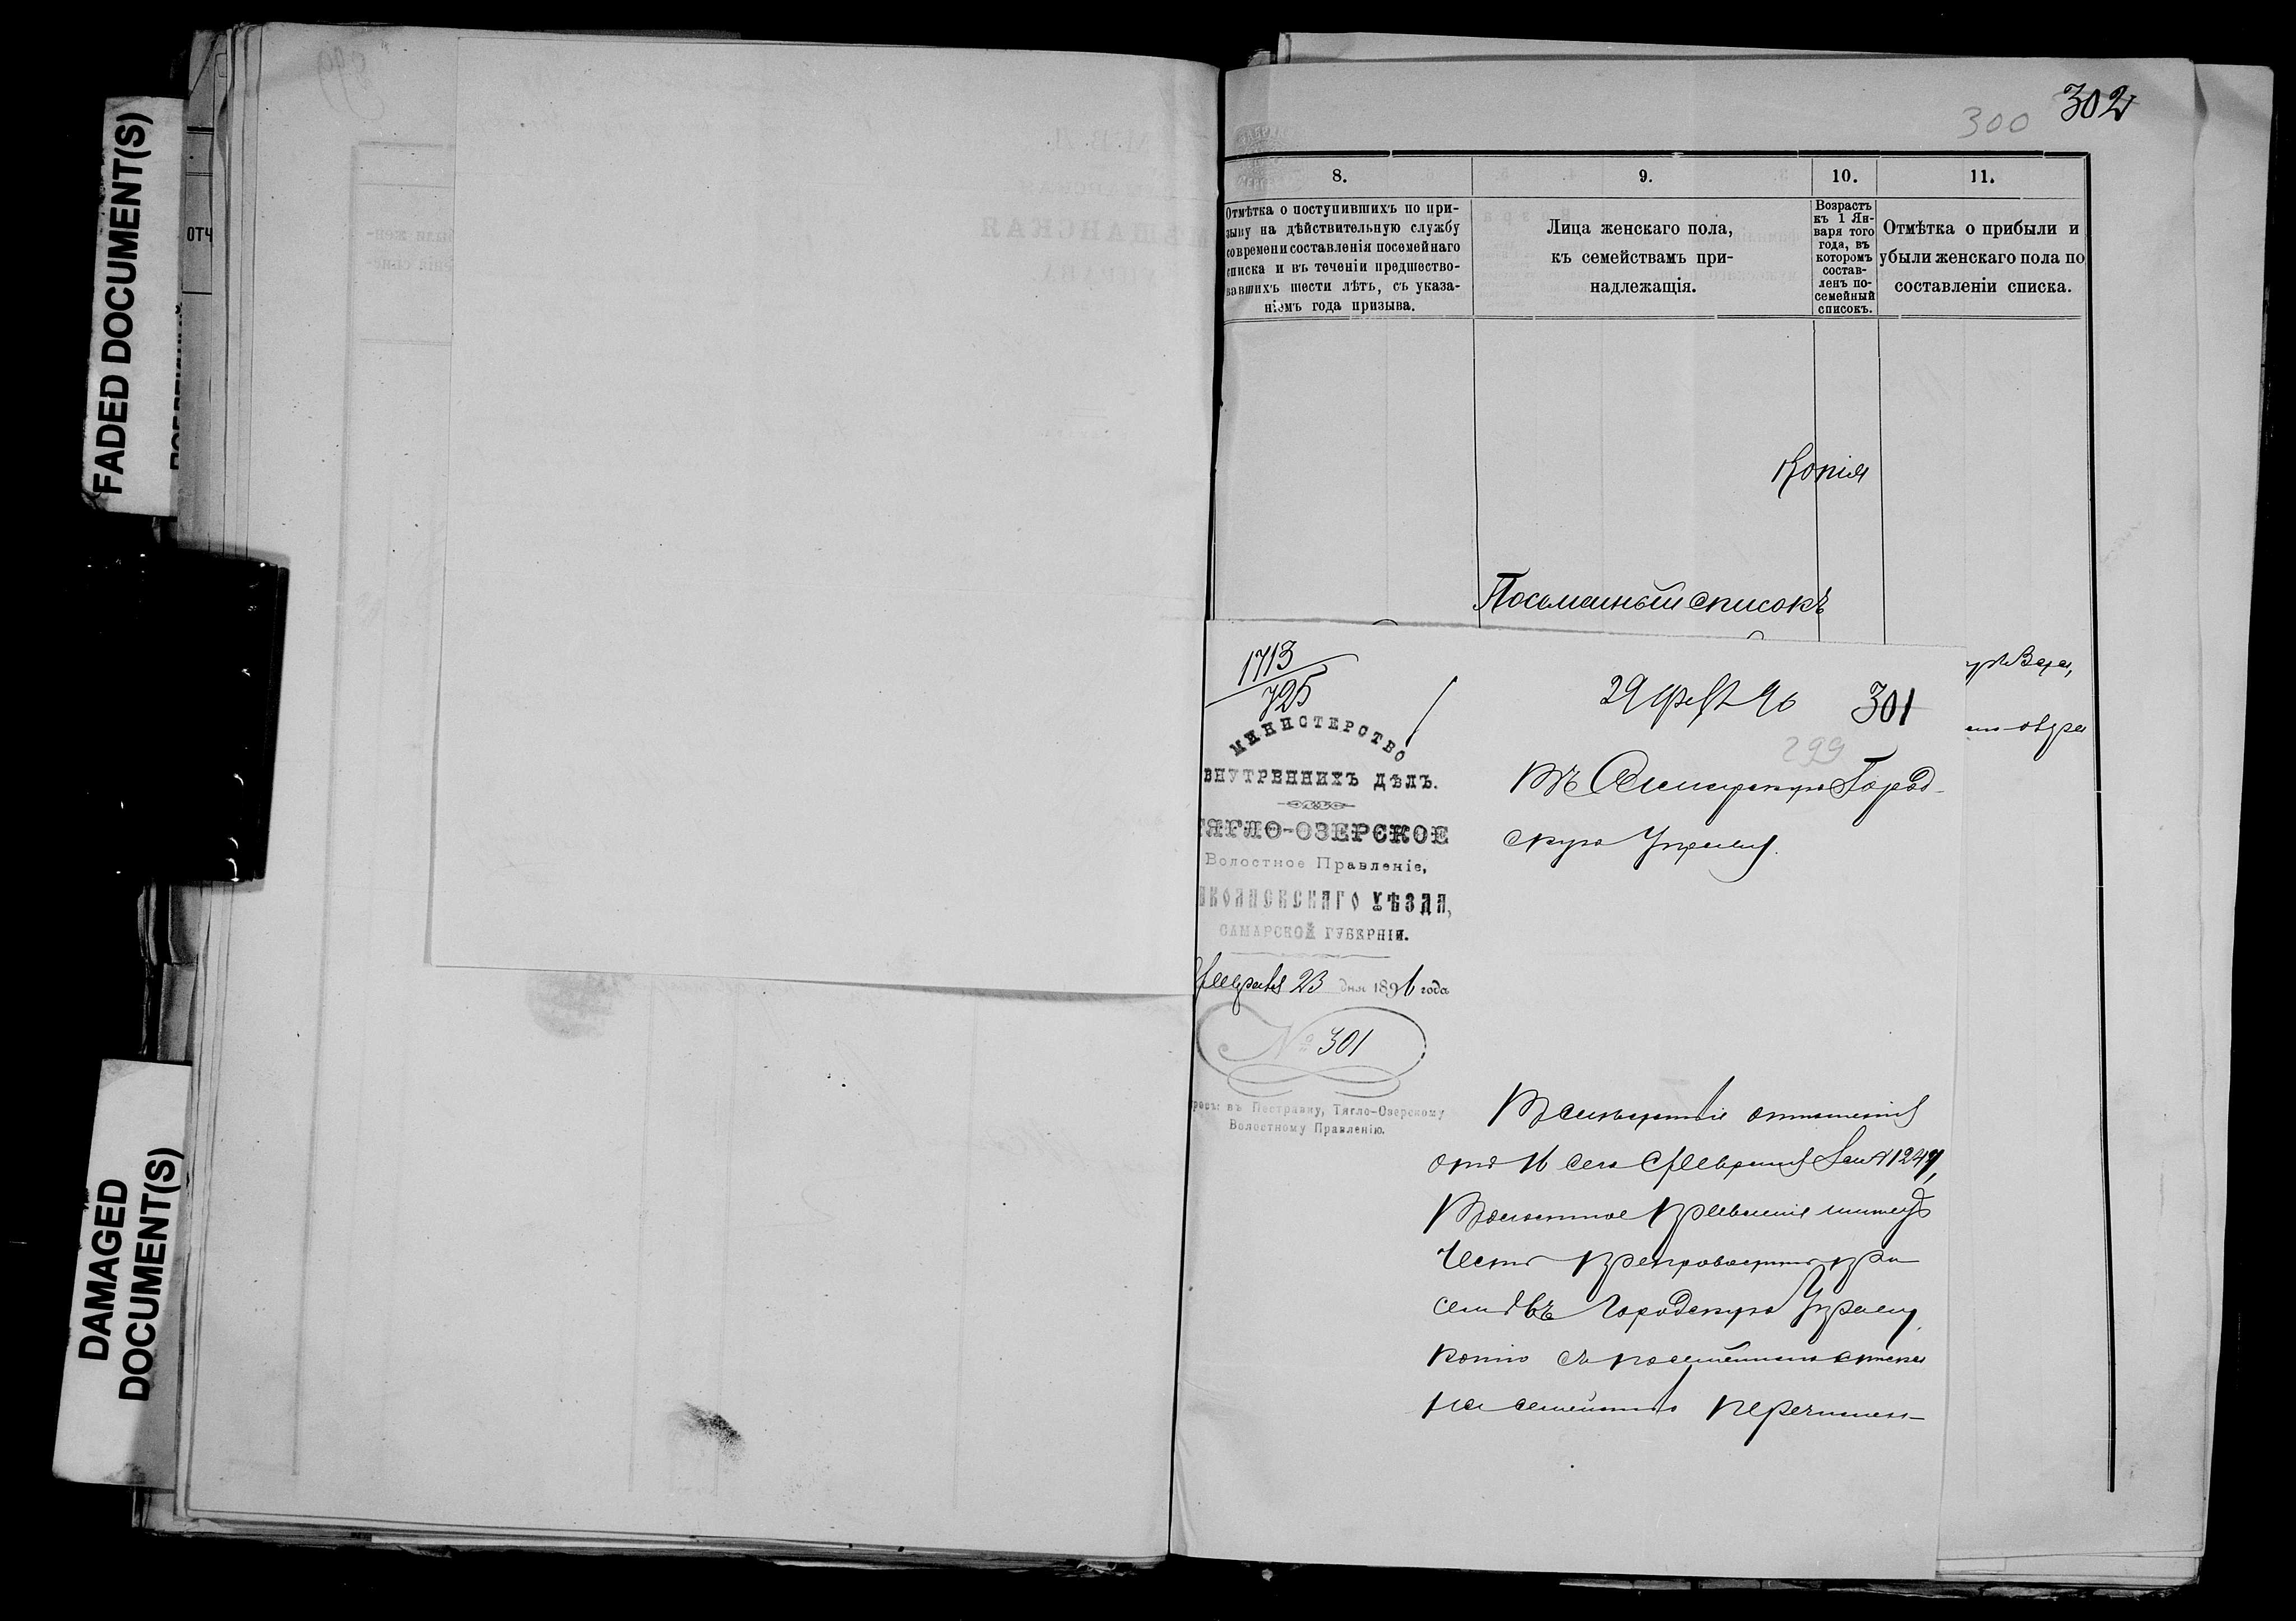 FADED DOCUMENT(S)
DAMAGED
DOCUMENT(S)
ОТЧ
302
300
8.
9.
10.
11.
Отмѣтка о поступившихъ по при-
зыву на дѣйствительную службу
со времени составленія посемейнаго
списка и въ теченіи предшество-
вавшихъ шести лѣтъ, съ указа-
ніемъ года призыва.
Лица женскаго пола,
къ семействамъ при-
надлежащія.
Возрастъ
къ 1 Ян-
варя того
года, въ
которомъ
состав-
ленъ по-
семейный
списокъ.
Отмѣтка о прибыли и
убыли женскаго пола по
составленіи списка.
Копія
Посемейный списокъ
1713
725
29 фев 96
301
299
МИНИСТЕРСТВО
ВНУТРЕННИХЪ ДѢЛЪ.
ТЯГЛО-ОЗЕРСКОЕ
Волостное Правленіе,
ИКОЛАЕВСКАГО УѢЗДА,
САМАРСКОЙ ГУБЕРНІИ.
Февраля 23 дня 1896 года
№ 301
ресъ: въ Пестравку, Тягло-Озерскому
Волостному Правленію.
Въ Самарскую Город-
скую Управу.
Въ отношенія
отъ 16 сего Февраля за № 1247,
Волостное Правленіе имѣетъ
честь препроводить при
семъ въ Городскую Управу
копію съ посемейнаго списка
на семейство перечислен-